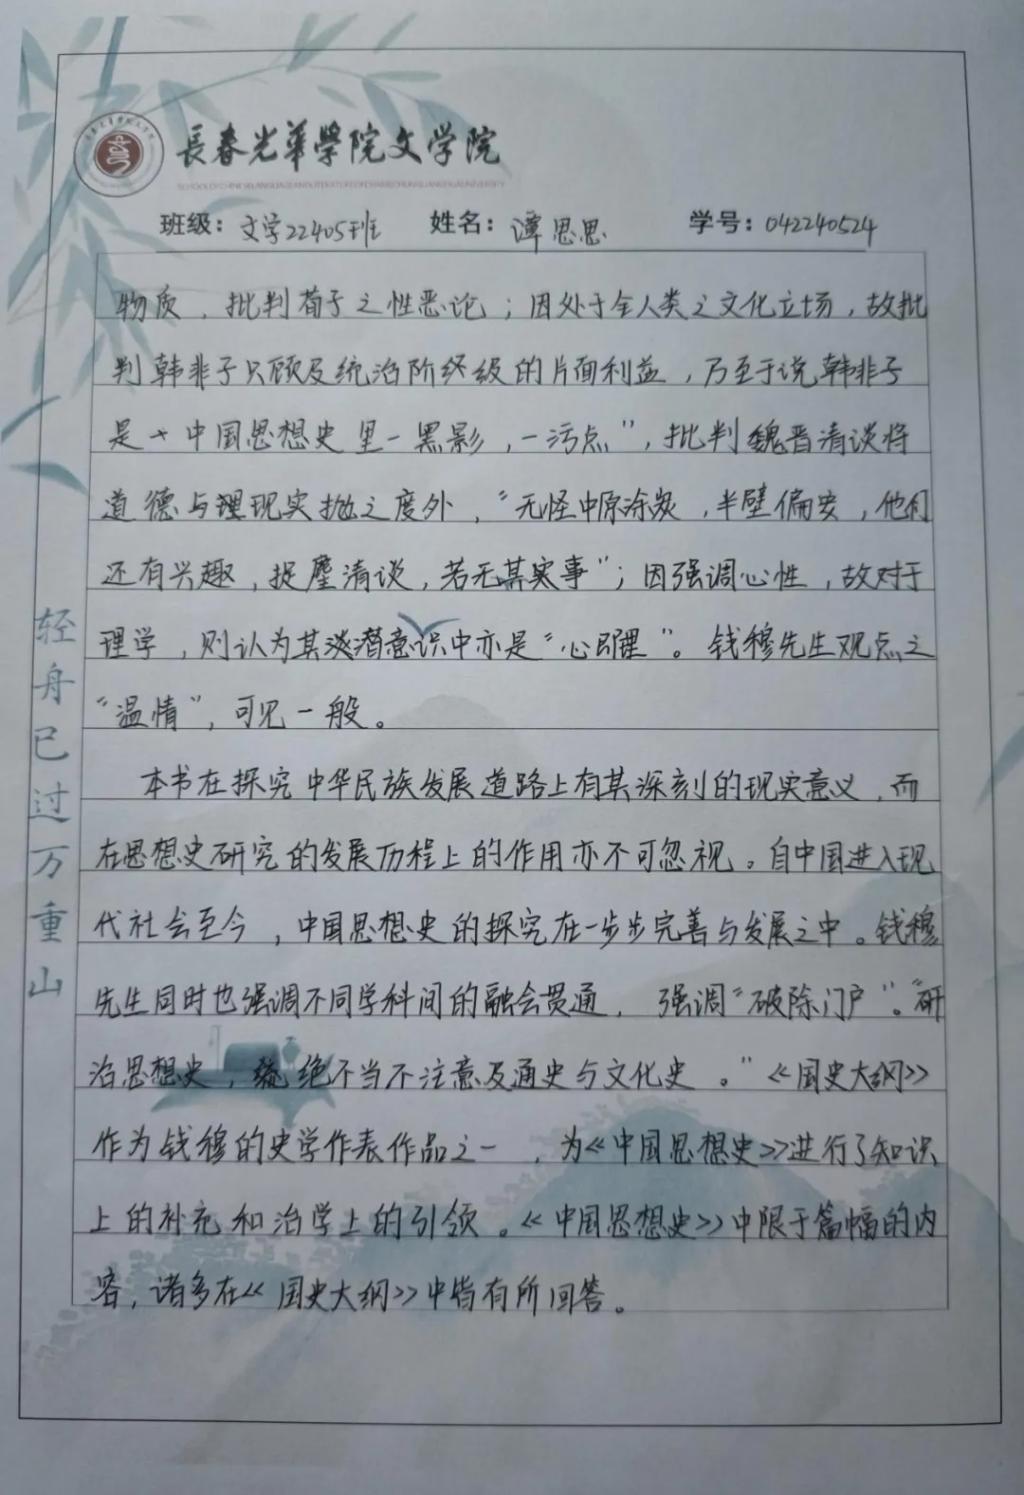 長春光华學院文学院
SCHOOL OF CHINESE LANGUAGE AND LITERATURE OF CHANGCHUN GUANGHUA UNIVERSITY
班级：文学22405班 姓名：谭思思 学号：042240524
物质，批判荀子之性恶论；因处于全人类之文化立场，故批
判韩非子只顾及统治阶终级的片面利益，乃至于说韩非子
是“中国思想史里一黑影，一污点”，批判魏晋清谈将
道德与理现实抛之度外，“无怪中原涂炭，半壁偏安，他们
还有兴趣，捉麈清谈，若无其实事”；因强调心性，故对于
理学，则认为其潜意识中亦是“心即理”。钱穆先生观点之
“温情”，可见一般。
本书在探究中华民族发展道路上有其深刻的现实意义，而
在思想史研究的发展历程上的作用亦不可忽视。自中国进入现
代社会至今，中国思想史的探究在一步步完善与发展之中。钱穆
先生同时也强调不同学科间的融会贯通，强调“破除门户”。“研
治思想史，绝不当不注意及通史与文化史。”《国史大纲》
作为钱穆的史学作表作品之一，为《中国思想史》进行了知识
上的补充和治学上的引领。《中国思想史》中限于篇幅的内
容，诸多在《国史大纲》中皆有所回答。
轻舟已过万重山